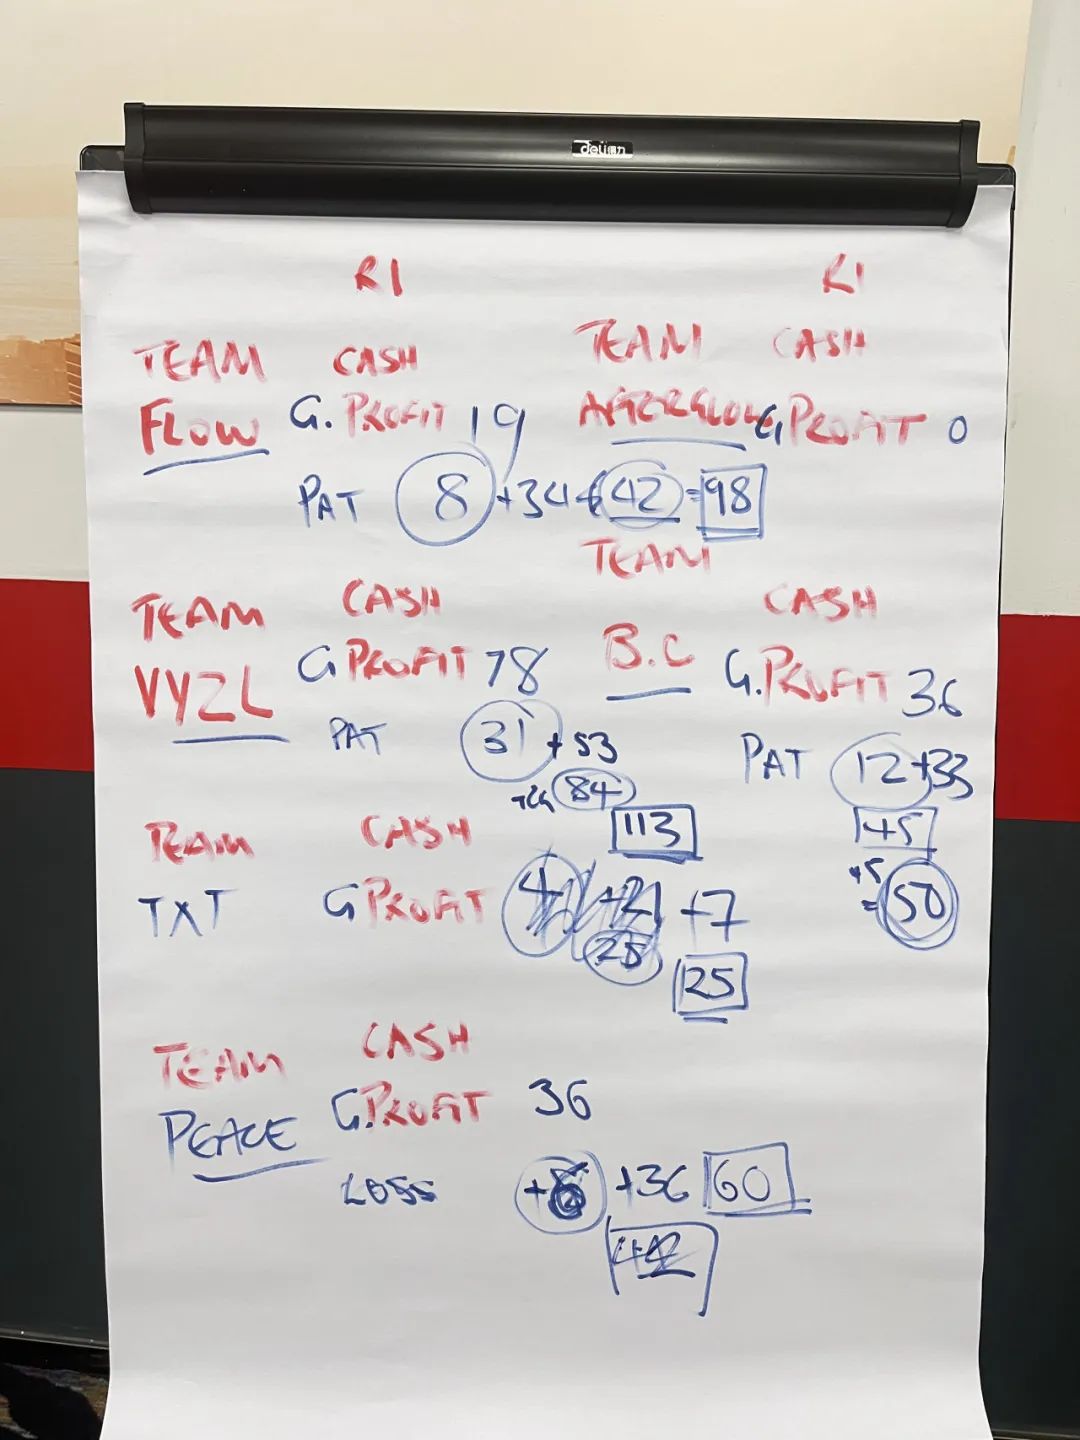 deli得力
R1
R1
TEAM CASH
FLOW G. PROFIT 19
PAT 8 +34 + 42 = 98
TEAM CASH
AFTERGLOW G PROFIT 0
TEAM CASH
VYZL G PROFIT 78
PAT 31 + 53
84
113
TEAM CASH
B.C G. PROFIT 36
PAT 12 + 33
45
+5
= 50
TEAM CASH
TXT G PROFIT 4 +21 +7
25
25
TEAM CASH
PEACE G. PROFIT 36
LOSS +36 60
42